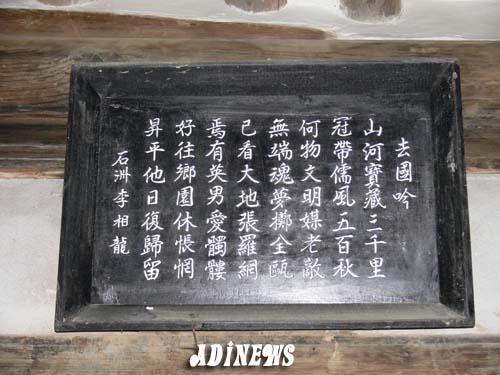 去國吟
山河寶藏三千里
冠帶儒風五百秋
何物文明媒老敵
無端魂夢擲全甌
已看大地張羅網
焉有英男愛髑髏
好往鄉園休悵惘
昇平他日復歸留
石洲 李相龍
ADiNEWS